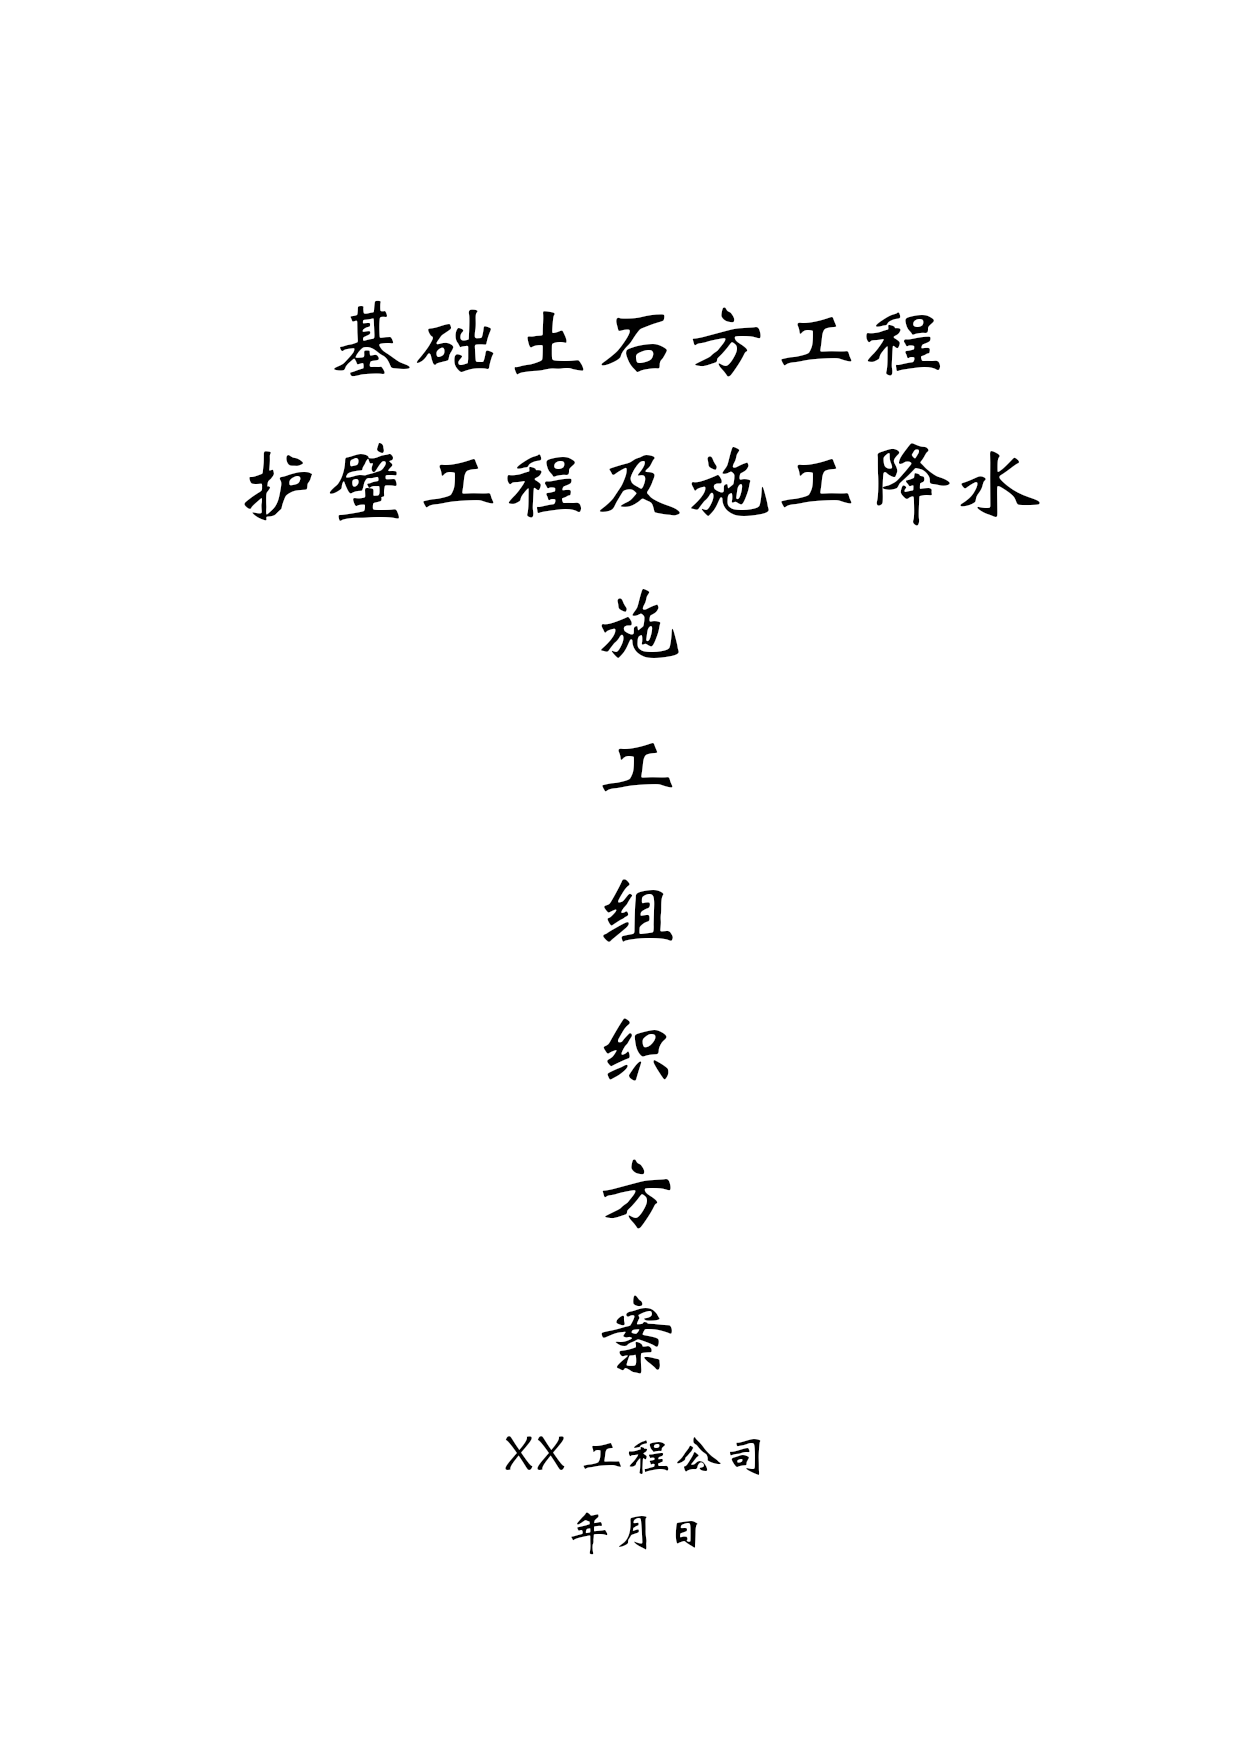 基础土石方工程
护壁工程及施工降水
施
工
组
织
方
案
XX 工程公司
年月日